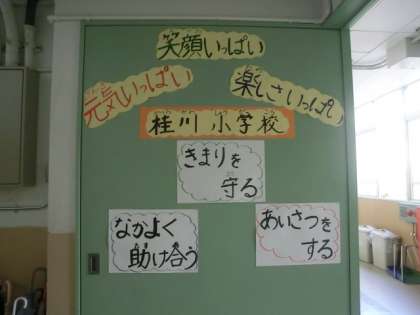 笑顔いっぱい
元気いっぱい
楽しさいっぱい
桂川小学校
きまりを
守る
なかよく
助け合う
あいさつを
する